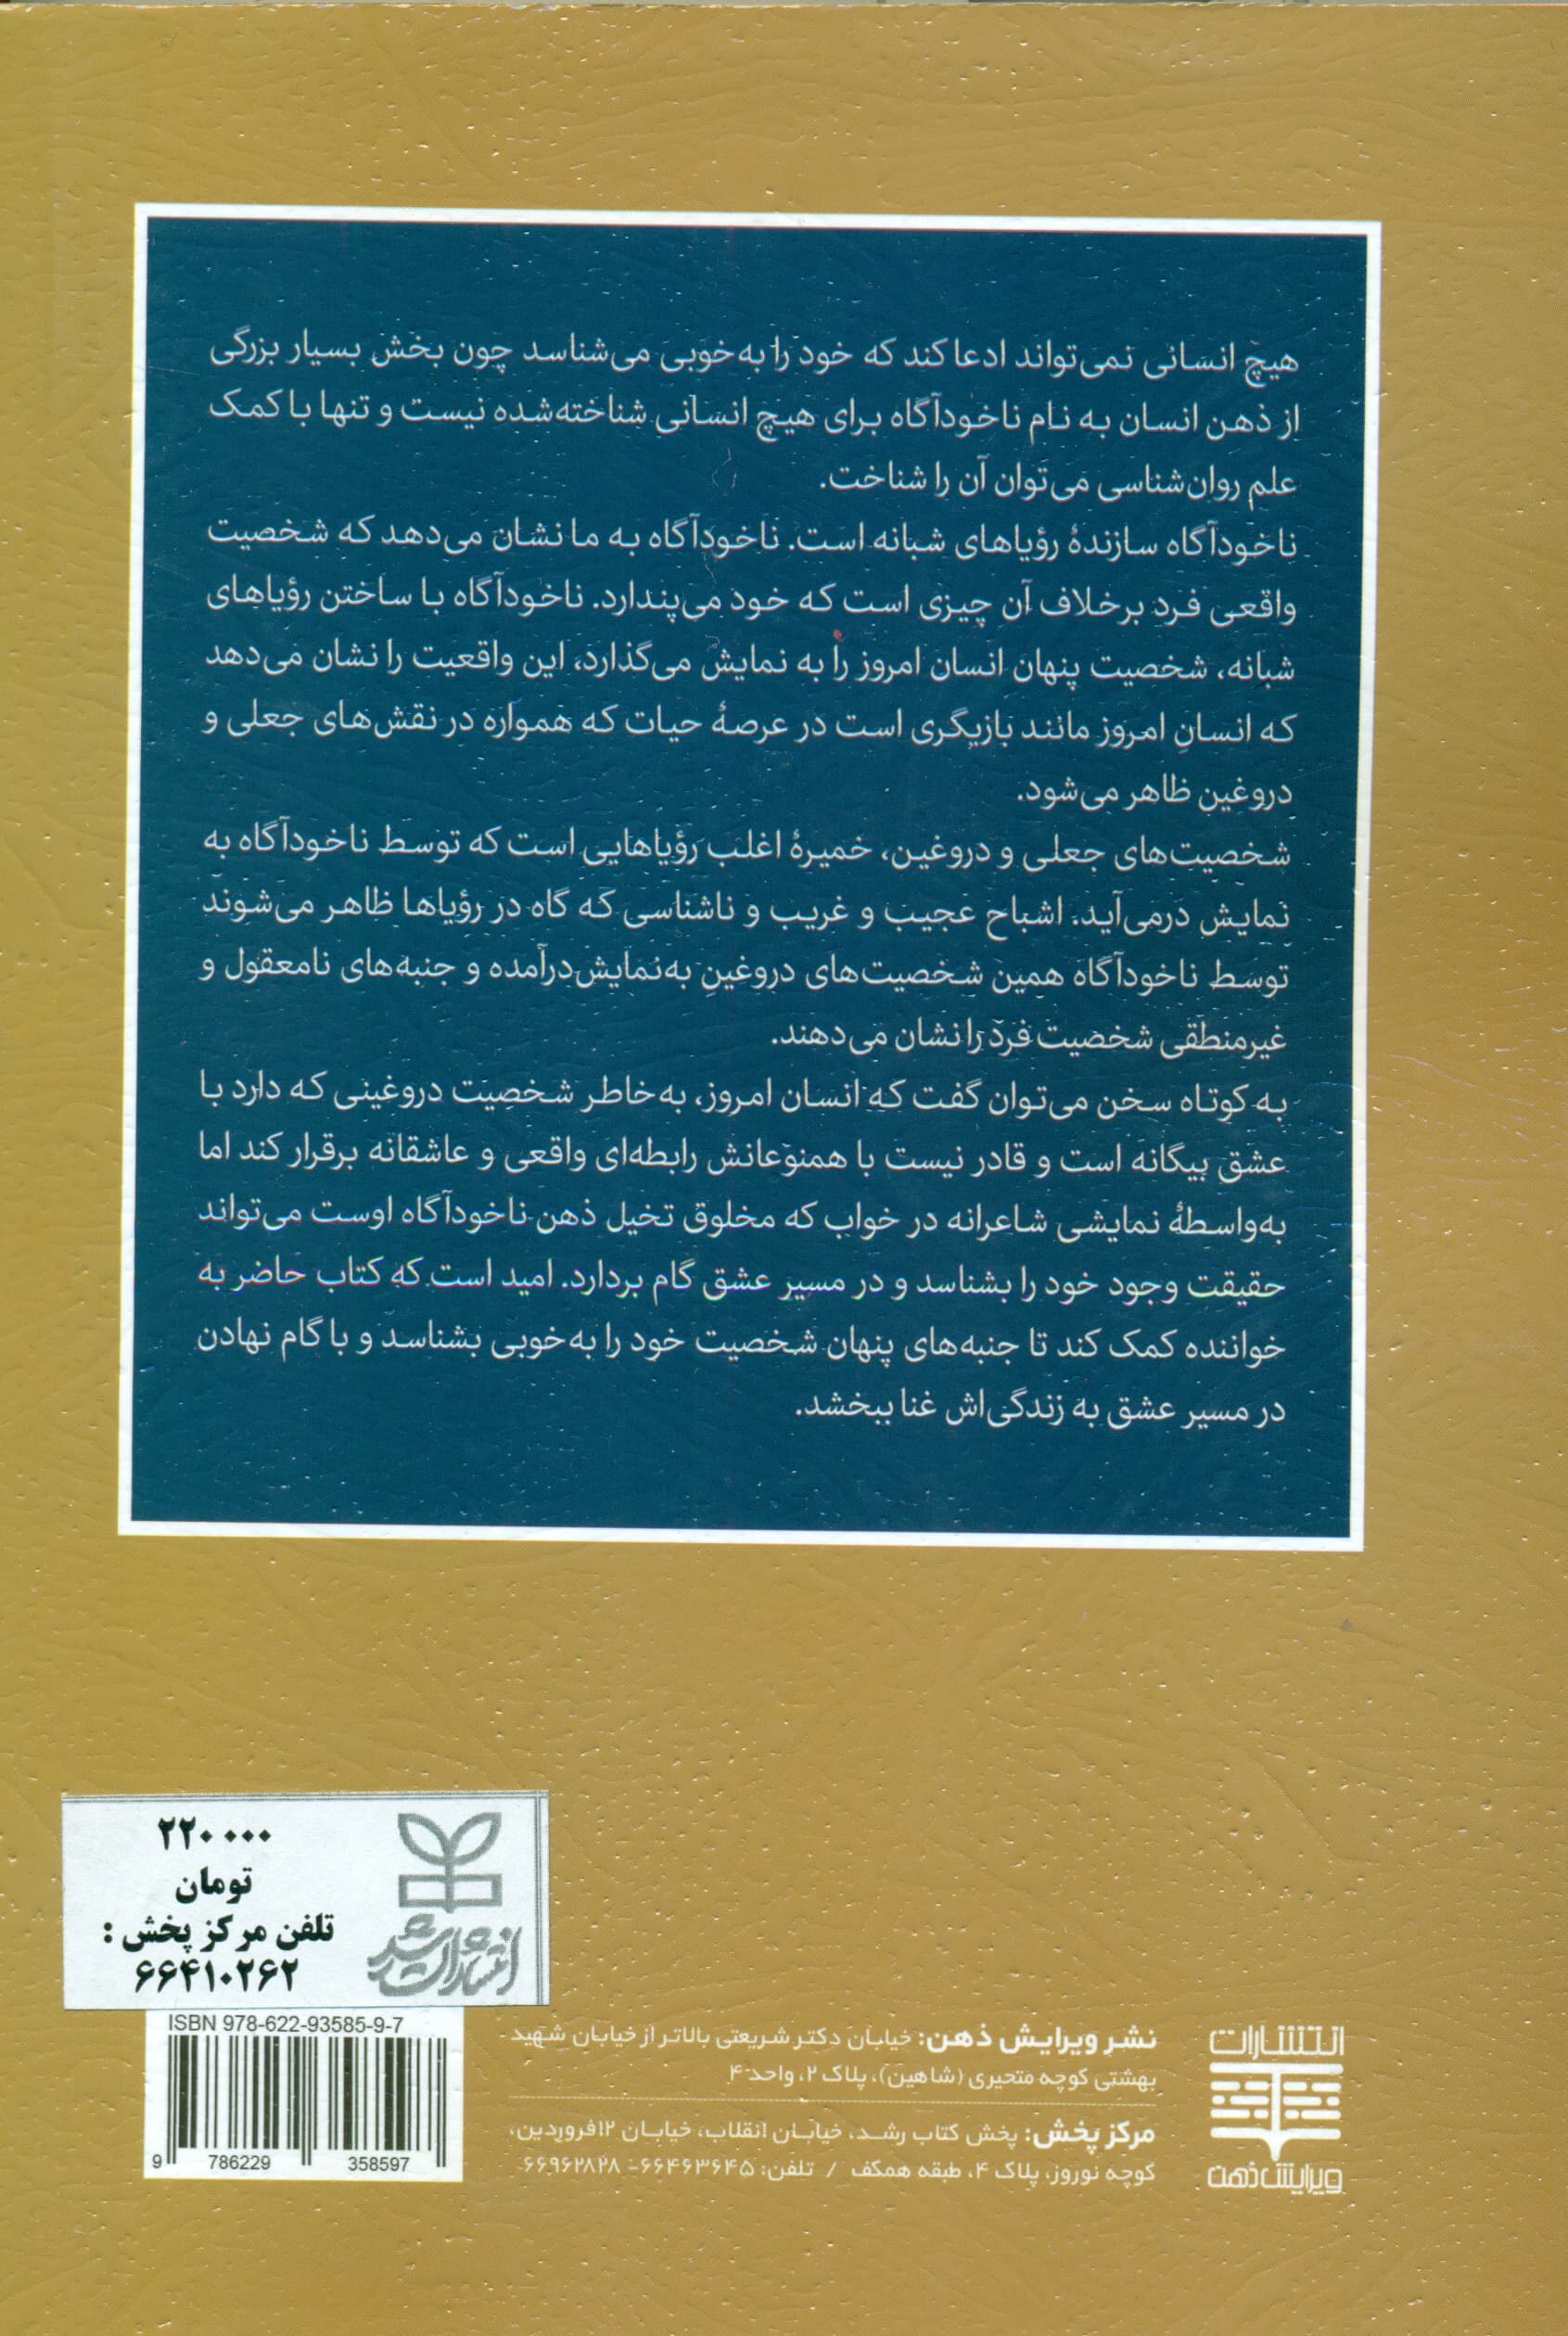 هیچ انسانی نمی‌تواند ادعا کند که خود را به‌خوبی می‌شناسد چون بخش بسیار بزرگی
از ذهن انسان به نام ناخودآگاه برای هیچ انسانی شناخته‌شده نیست و تنها با کمک
علم روان‌شناسی می‌توان آن را شناخت.
ناخودآگاه سازندهٔ رؤیاهای شبانه است. ناخودآگاه به ما نشان می‌دهد که شخصیت
واقعی فرد برخلاف آن چیزی است که خود می‌پندارد. ناخودآگاه با ساختن رؤیاهای
شبانه، شخصیت پنهان انسان امروز را به نمایش می‌گذارد، این واقعیت را نشان می‌دهد
که انسانِ امروز مانند بازیگری است در عرصهٔ حیات که همواره در نقش‌های جعلی و
دروغین ظاهر می‌شود.
شخصیت‌های جعلی و دروغین، خمیرهٔ اغلب رؤیاهایی است که توسط ناخودآگاه به
نمایش درمی‌آید. اشباح عجیب و غریب و ناشناسی که گاه در رؤیاها ظاهر می‌شوند
توسط ناخودآگاه همین شخصیت‌های دروغینِ به‌نمایش‌درآمده و جنبه‌های نامعقول و
غیرمنطقی شخصیت فرد را نشان می‌دهند.
به کوتاه سخن می‌توان گفت که انسان امروز، به‌خاطر شخصیت دروغینی که دارد با
عشق بیگانه است و قادر نیست با همنوعانش رابطه‌ای واقعی و عاشقانه برقرار کند اما
به‌واسطهٔ نمایشی شاعرانه در خواب که مخلوق تخیل ذهن ناخودآگاه اوست می‌تواند
حقیقت وجود خود را بشناسد و در مسیر عشق گام بردارد. امید است که کتاب حاضر به
خواننده کمک کند تا جنبه‌های پنهان شخصیت خود را به‌خوبی بشناسد و با گام نهادن
در مسیر عشق به زندگی‌اش غنا ببخشد.
۲۲۰۰۰۰
تومان
تلفن مرکز پخش :
۶۶۴۱۰۲۶۲
انتشارات رشد
ISBN 978-622-93585-9-7
9 786229 358597
نشر ویرایش ذهن: خیابان دکتر شریعتی بالاتر از خیابان شهید
بهشتی کوچه متحیری (شاهین)، پلاک ۲، واحد ۴
مرکز پخش: پخش کتاب رشد، خیابان انقلاب، خیابان ۱۲فروردین،
کوچه نوروز، پلاک ۴، طبقه همکف / تلفن: ۶۶۴۶۳۶۴۵- ۶۶۹۶۲۸۲۸
انتشارات
ویرایش ذهن